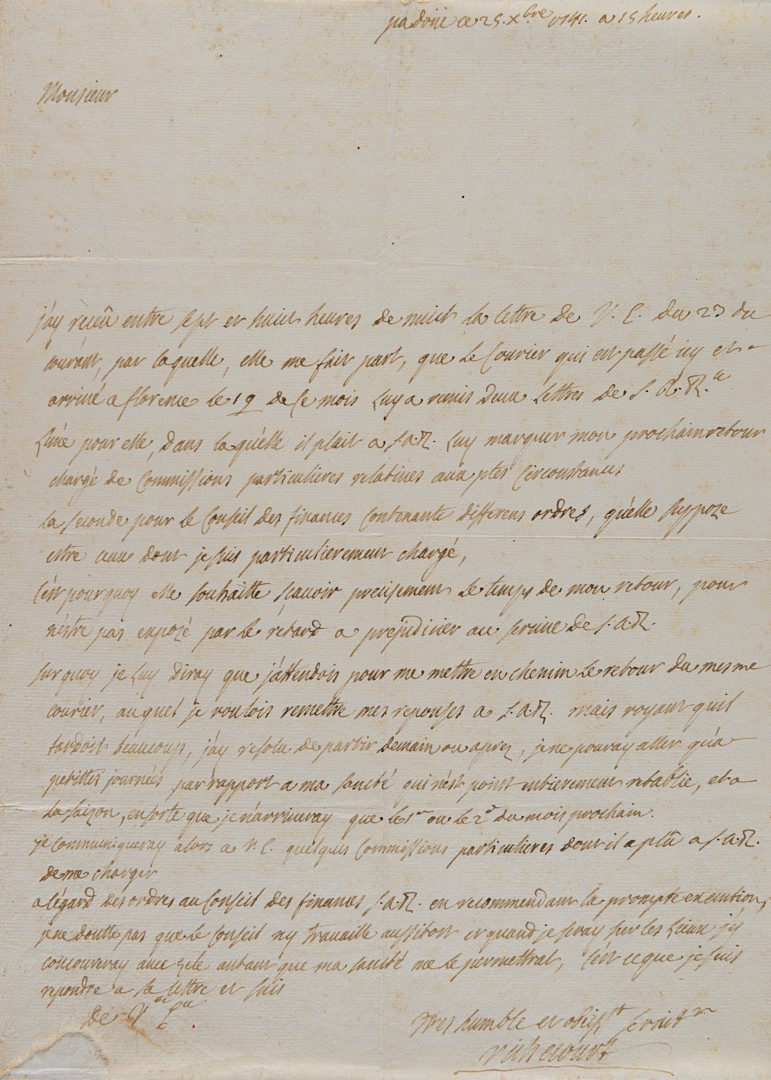 padoüe ce 25. Xbre 1741. a 15 heures.
Monsieur
j'ay reçeû entre sept et huict heures de nuict la lettre de V. E. du 23 du
courant, par laquelle, elle me fait part, que le Courier qui est passé icy et
arriué a florence le 19 de ce mois Luy a remis deux Lettres de S. A. R.le
L'une pour elle, dans laquelle il plait a S.A.R. Luy marquer mon prochain retour
chargé de Commissions particulieres relatiues aux pntes Circonstances
La seconde pour le Conseil des finances Contenante differens ordres, qu'elle suppoze
estre ceux dont je suis particulierement chargé,
C'est pourquoy elle souhaitte sçauoir precisement Le temps de mon retour, pour
n'estre pas expozé par le retard a prejudicier au seruice de S.A.R.
sur quoy je Luy diray que j'attendois pour me mettre en chemin Le retour du mesme
courier, auquel je voulois remettre mes reponses a S.A.R. mais voyant quil
tardoit beaucoup, j'ay resolu de partir demain ou aprez, je ne pouray aller qu'a
petittes journées par rapport a ma santé qui n'est point entierement retablie, et a
La saizon, ensorte que je n'arriveray que le 1er ou le 2d du mois prochain.
je Communiqueray alors a V.E. quelques Commissions particulieres dont il a plû a S.A.R.
de me charger
a légard des ordres au Conseil des finances S.A.R. en recommendant la prompte execution,
je ne doutte pas que le Conseil n'y travaille aussitost et quand je seray sur les Lieux j'y
concoureray auec zele autant que ma santé me le permettrat, C'est ce que je puis
repondre a sa lettre et suis
de V. E.ce
tres humble et obeisst seruitr
richecourt